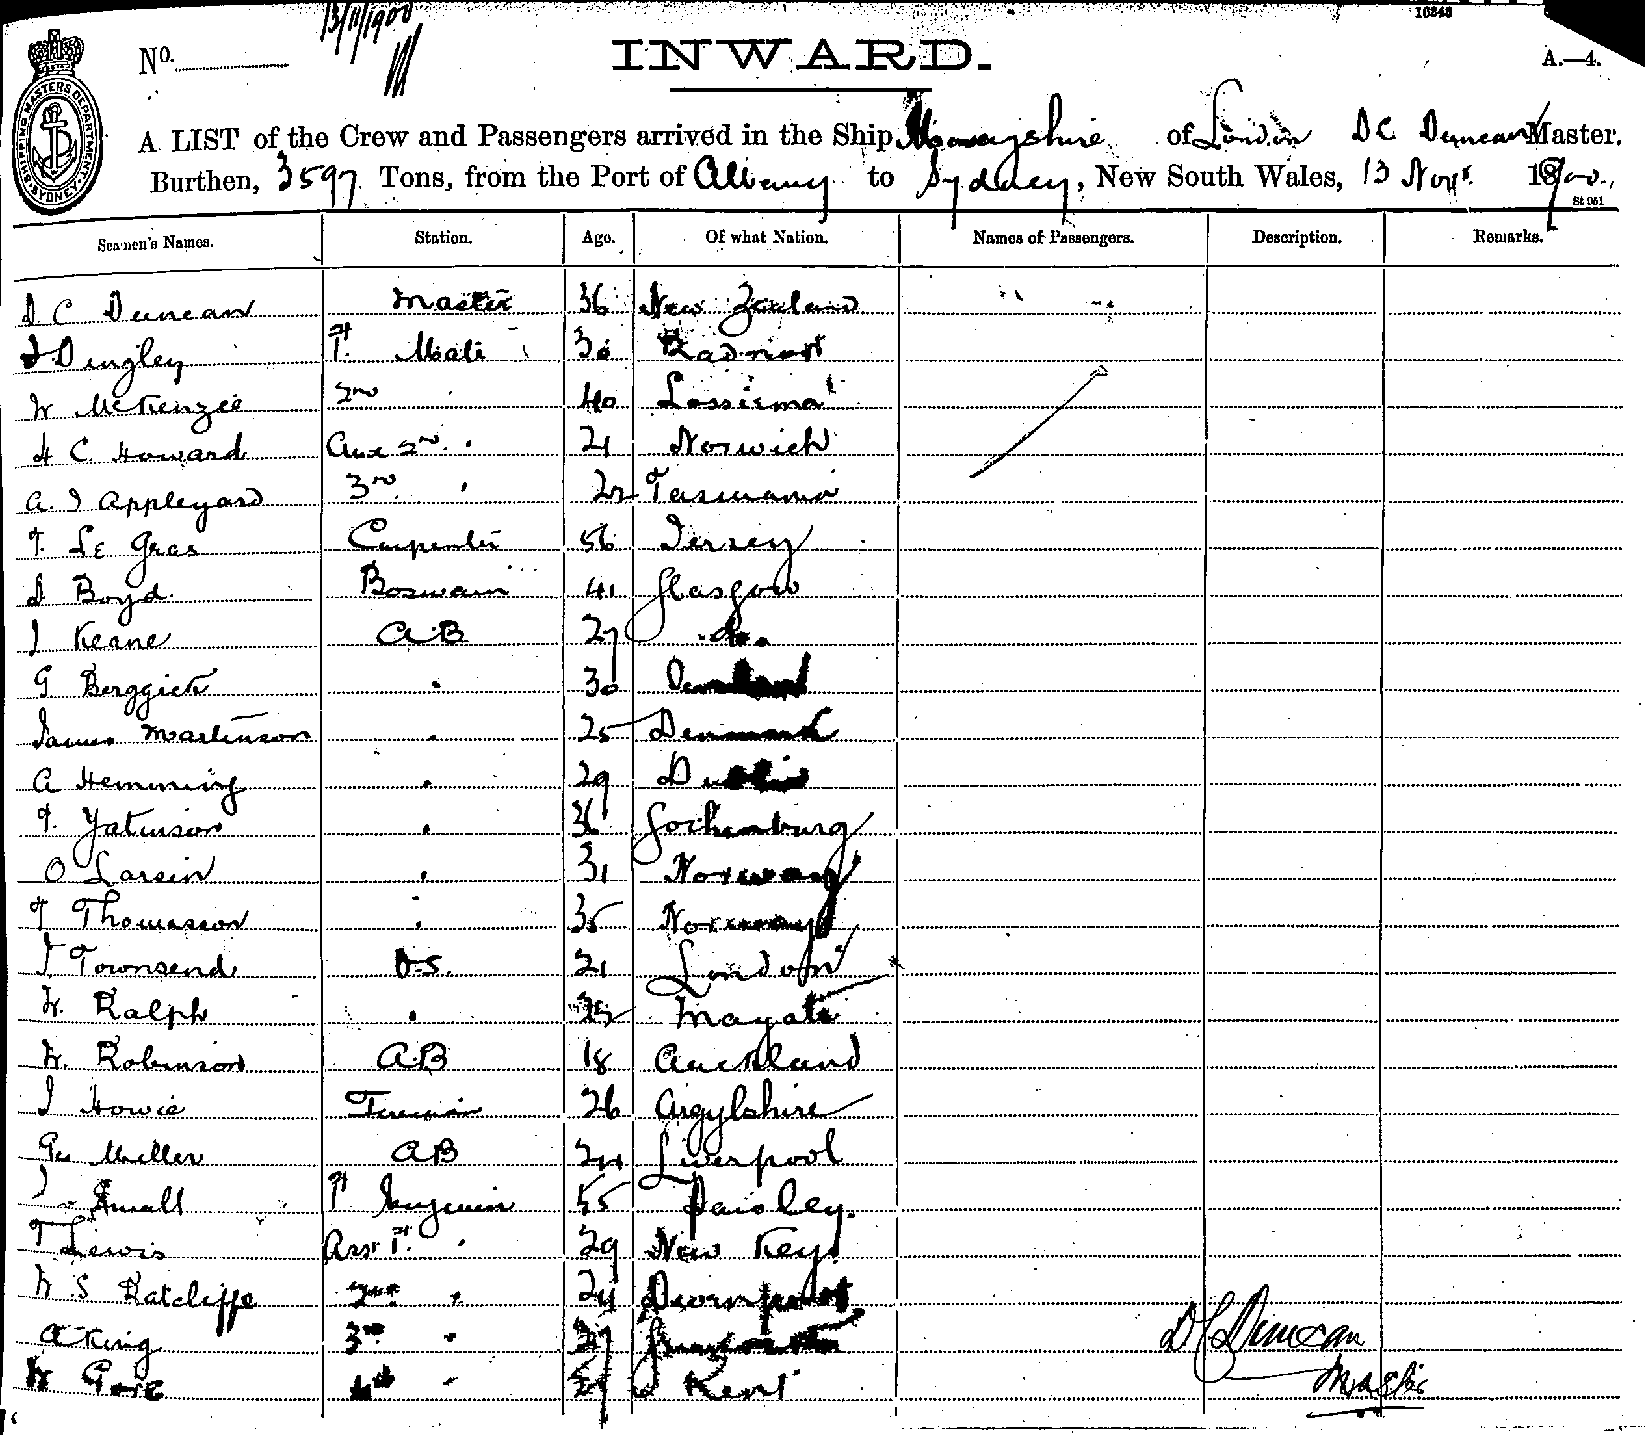 13/11/1900
10848
No.
INWARD.
A.—4.
A LIST of the Crew and Passengers arrived in the Ship Morayshire of London D C Duncan Master.
Burthen, 3597 Tons, from the Port of Albany to Sydney, New South Wales, 13 Novr. 1900.
St 061
Seamen's Names. Station. Age. Of what Nation. Names of Passengers. Description. Remarks.
D C Duncan Master 36 New Zealand
Dingley 1st Mate 30 Radnor
W McKenzie 2nd " 40 Lossiema
H C Howard Aux 2nd " 21 Norwich
A. J Appleyard 3rd " 22 Tasmania
F. Le Gras Carpenter 56 Jersey
D Boyd Boswain 41 Glasgow
J Keane AB 27 do.
G Berggick " 30
James Martinson " 25 Denmark
A Hemming " 29 Dublin
F. Yatinson " 36 Gothenburg
O Larsin " 31 Norway
F Thomasson " 35 Norway
J Townsend O.S. 21 London
W. Ralph " Magate
W. Robinson AB 18 Auckland
J Howie 26 Argylshire
Geo Miller AB 24 Liverpool
J Small 1st Enginein 55 Paisley.
T Lewis Asst 1st " 29 New Keys
W S Ratcliffe 2nd " 24 Devonport
A King 3rd " 27
W Gore 4th " Kent
D C Duncan
Master